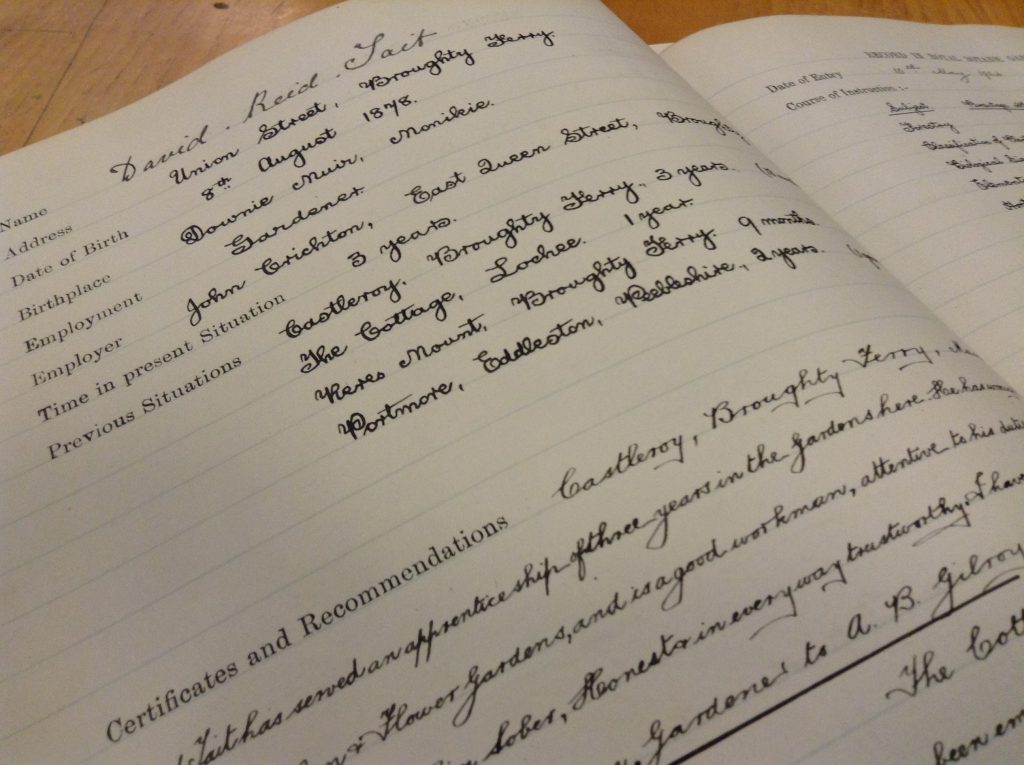 Name David Reid Tait
Address Union Street, Broughty Ferry.
Date of Birth 8th August 1878.
Birthplace Downie Muir, Monikie.
Employment Gardener
Employer John Crichton, East Queen Street,
Time in present Situation 3 years.
Previous Situations Castleroy, Broughty Ferry., 3 years.
The Cottage, Lochee. 1 year.
Keres Mount, Broughty Ferry. 9 months.
Portmore, Eddleston, Peebleshire., 2 years.
Certificates and Recommendations Castleroy, Broughty Ferry,
Tait has served an apprenticeship of three years in the Gardens here. He has
& Flower Gardens, and is a good workman, attentive to his
Sober, Honest & in every way trustworthy. I have
Gardener to A. B. Gilroy
The
been
RECORD IN ROYAL
Date of Entry May
Course of Instruction :-
Subject
Forestry